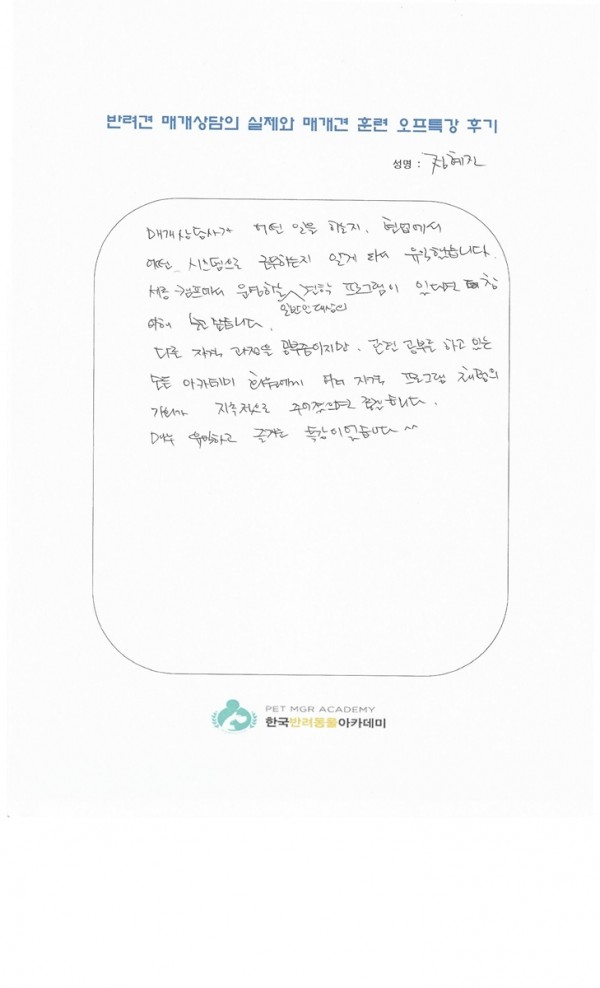 반려견 매개상담의 실제와 매개견 훈련 오프특강 후기
성명 : 정혜진
매개상담사가 어떤 일을 하는지, 현장에서
어떤 시스템으로 근무하는지 알게 되어 유익했습니다.
캠프에서 운영하는 견학 프로그램이 있다면 참
여하고 싶습니다.
일반인 대상의
다른 자격 과정을 공부중이지만, 관련 공부를 하고 있는
모든 아카데미 회원에게 여러 자격 프로그램 체험의
기회가 지속적으로 주어졌으면 좋겠습니다.
매우 유익하고 즐거운 특강이었습니다 ^^
PET MGR ACADEMY
한국반려동물아카데미